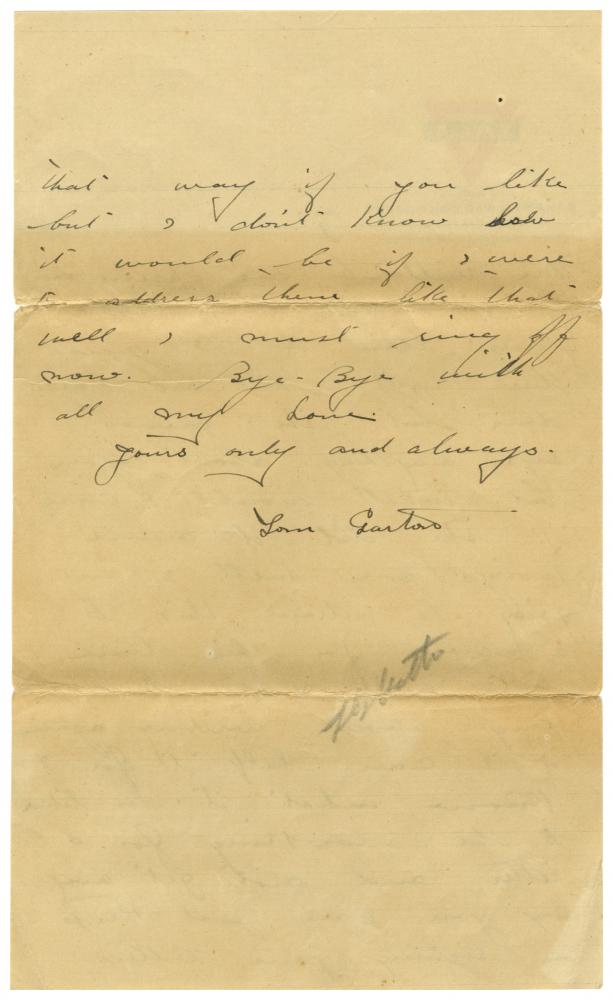 that way if you like
but I don't know how
it would be if I were
to address them like that
well I must ring off
now. Bye-Bye with
all my Love.
yours only and always.
Tom